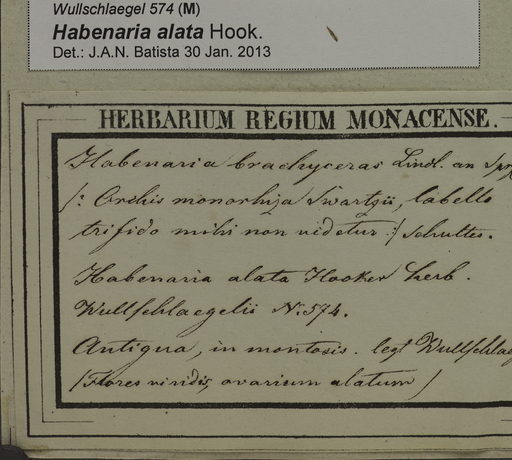 Wullschlaegel 574 (M)
Habenaria alata Hook.
Det.: J.A.N. Batista 30 Jan. 2013
HERBARIUM REGIUM MONACENSE.
Habenaria brachyceras Lindl. an
/: Orchis monorhiza Swartzii, labello
trifido mihi non videtur :/ Schultes.
Habenaria alata Hooker herb.
Wullschlaegelii N. 574.
Antigua, in montosis. legt Wullschlaeg
/Flores viridis, ovarium alatum/